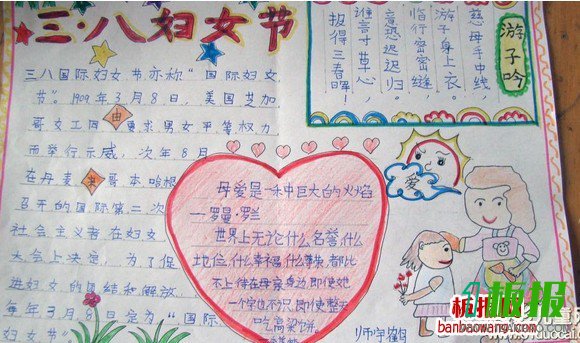 三·八妇女节
三八国际妇女节亦称“国际妇女
节”。1909年3月8日,美国芝加
哥女工因要求男女平等权力
而举行示威,次年8月
在丹麦哥本哈根
召开的国际第二次
社会主义者在妇女
大会上决定,为了促
进妇女的团结和解放,
每年3月8日定为“国际
妇女节”
游子吟
慈母手中线,
游子身上衣。
临行密密缝,
意恐迟迟归。
谁言寸草心,
报得三春晖!
母爱是一种巨大的火焰
—罗曼·罗兰
世界上无论什么名誉,什么
地位,什么幸福,什么尊荣,都比
不上待在母亲身边,即使她
一个字也不识,即使整天
吃
爱
师字
板报
板报网
banbaowang.com